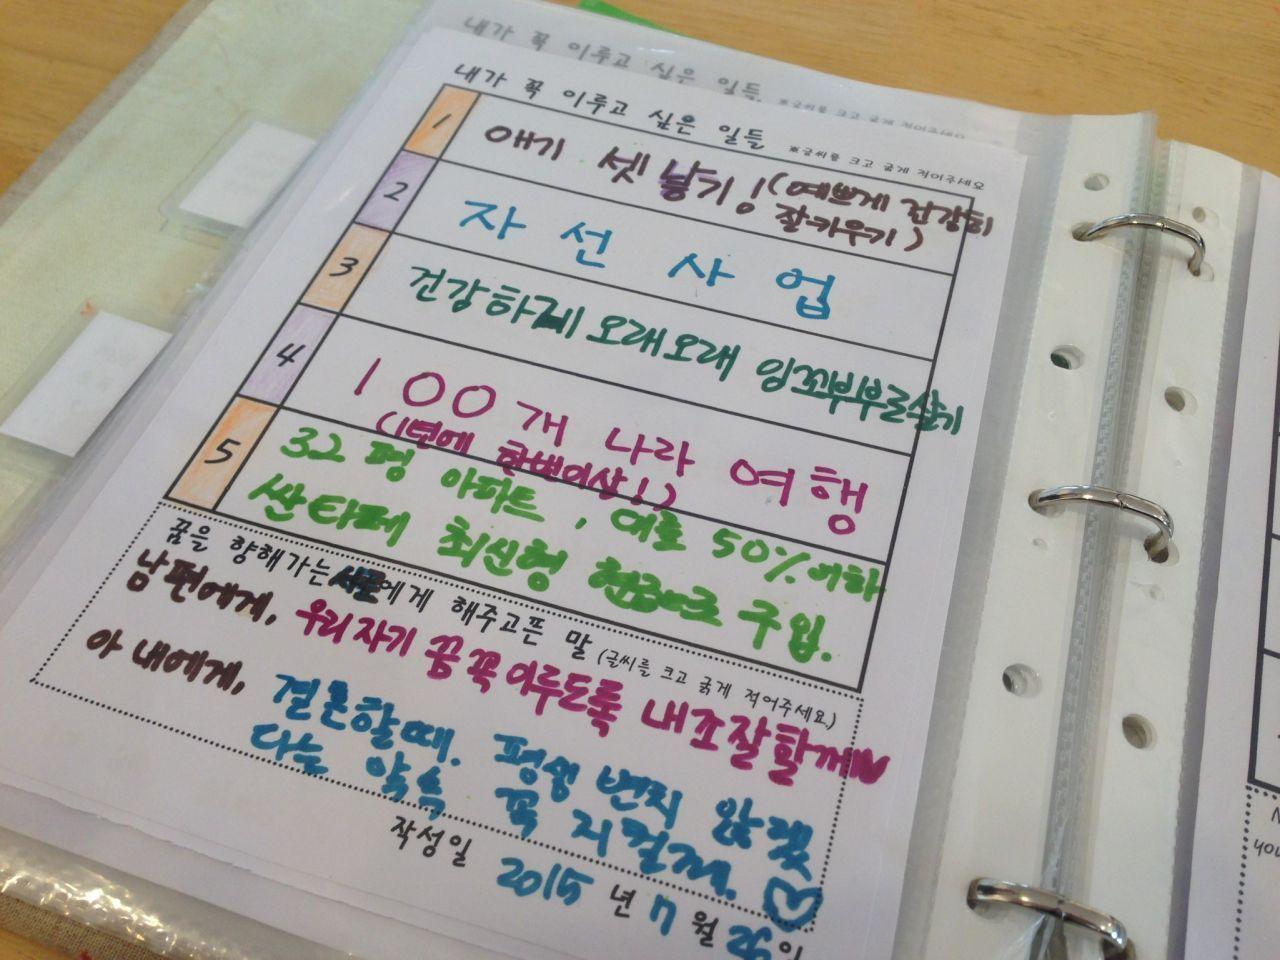 내가 꼭 이루고 싶은 일들
내가 꼭 이루고 싶은 일들 ※글씨를 크고 굵게 적어주세요
1 애기 셋 낳기! (예쁘게 건강히
잘키우기)
2 자선사업
3 건강하게 오래오래 잉꼬부부로살기
4 100개 나라 여행
(1년에 한번이상!)
5 32평 아파트, 대출 50%이하
싼타페 최신형 현금으로 구입.
꿈을 향해가는 에게 해주고픈 말 (글씨를 크고 굵게 적어주세요.)
남편에게, 우리자기 꿈 꼭 이루도록 내조잘할께
아내에게, 결혼할때. 평생 변치 않겠
다는 약속 꼭 지킬게.
작성일 2015년 7월 26일